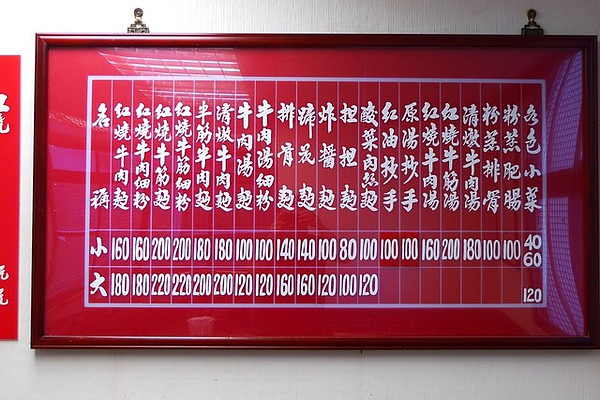 名稱
紅燒牛肉麵
紅燒牛肉細粉
紅燒牛筋麵
紅燒牛筋細粉
半筋半肉麵
清燉牛肉麵
牛肉湯麵
牛肉湯細粉
排骨麵
蹄花麵
炸醬麵
担担麵
酸菜肉絲麵
紅油抄手
原湯抄手
紅燒牛肉湯
紅燒牛筋湯
清燉牛肉湯
粉蒸排骨
粉蒸肥腸
各色小菜
小 160 160 200 200 180 180 100 100 140 140 100 80 100 100 100 160 200 180 100 100 40 60
大 180 180 220 220 200 200 120 120 160 160 120 100 120 120